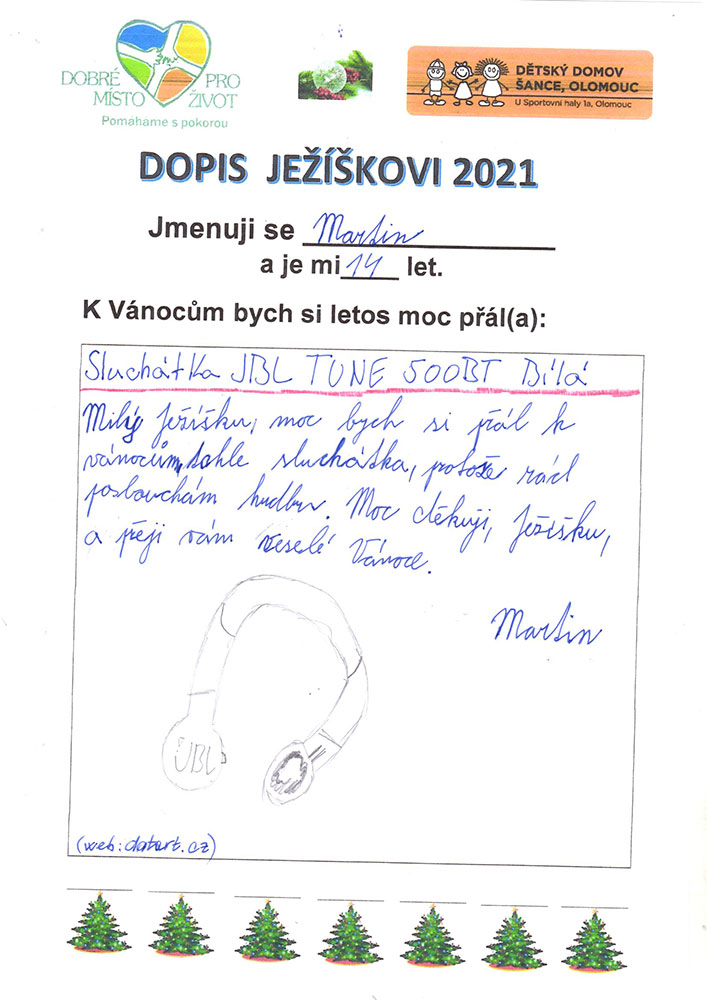 DOBRÉ PRO
MÍSTO ŽIVOT
Pomahame s pokorou
DĚTSKÝ DOMOV
ŠANCE, OLOMOUC
U Sportovní haly 1a, Olomouc
DOPIS JEŽÍŠKOVI 2021
Jmenuji se Martin
a je mi 14 let.
K Vánocům bych si letos moc přál(a):
Sluchátka JBL TUNE 500BT Bílá
Milý Ježíšku, moc bych si přál k
vánocům tohle sluchátka, protože rád
poslouchám hudbu. Moc děkuji, Ježíšku,
a přeji vám veselé Vánoce.
Martin
JBL
(web: datart.cz)